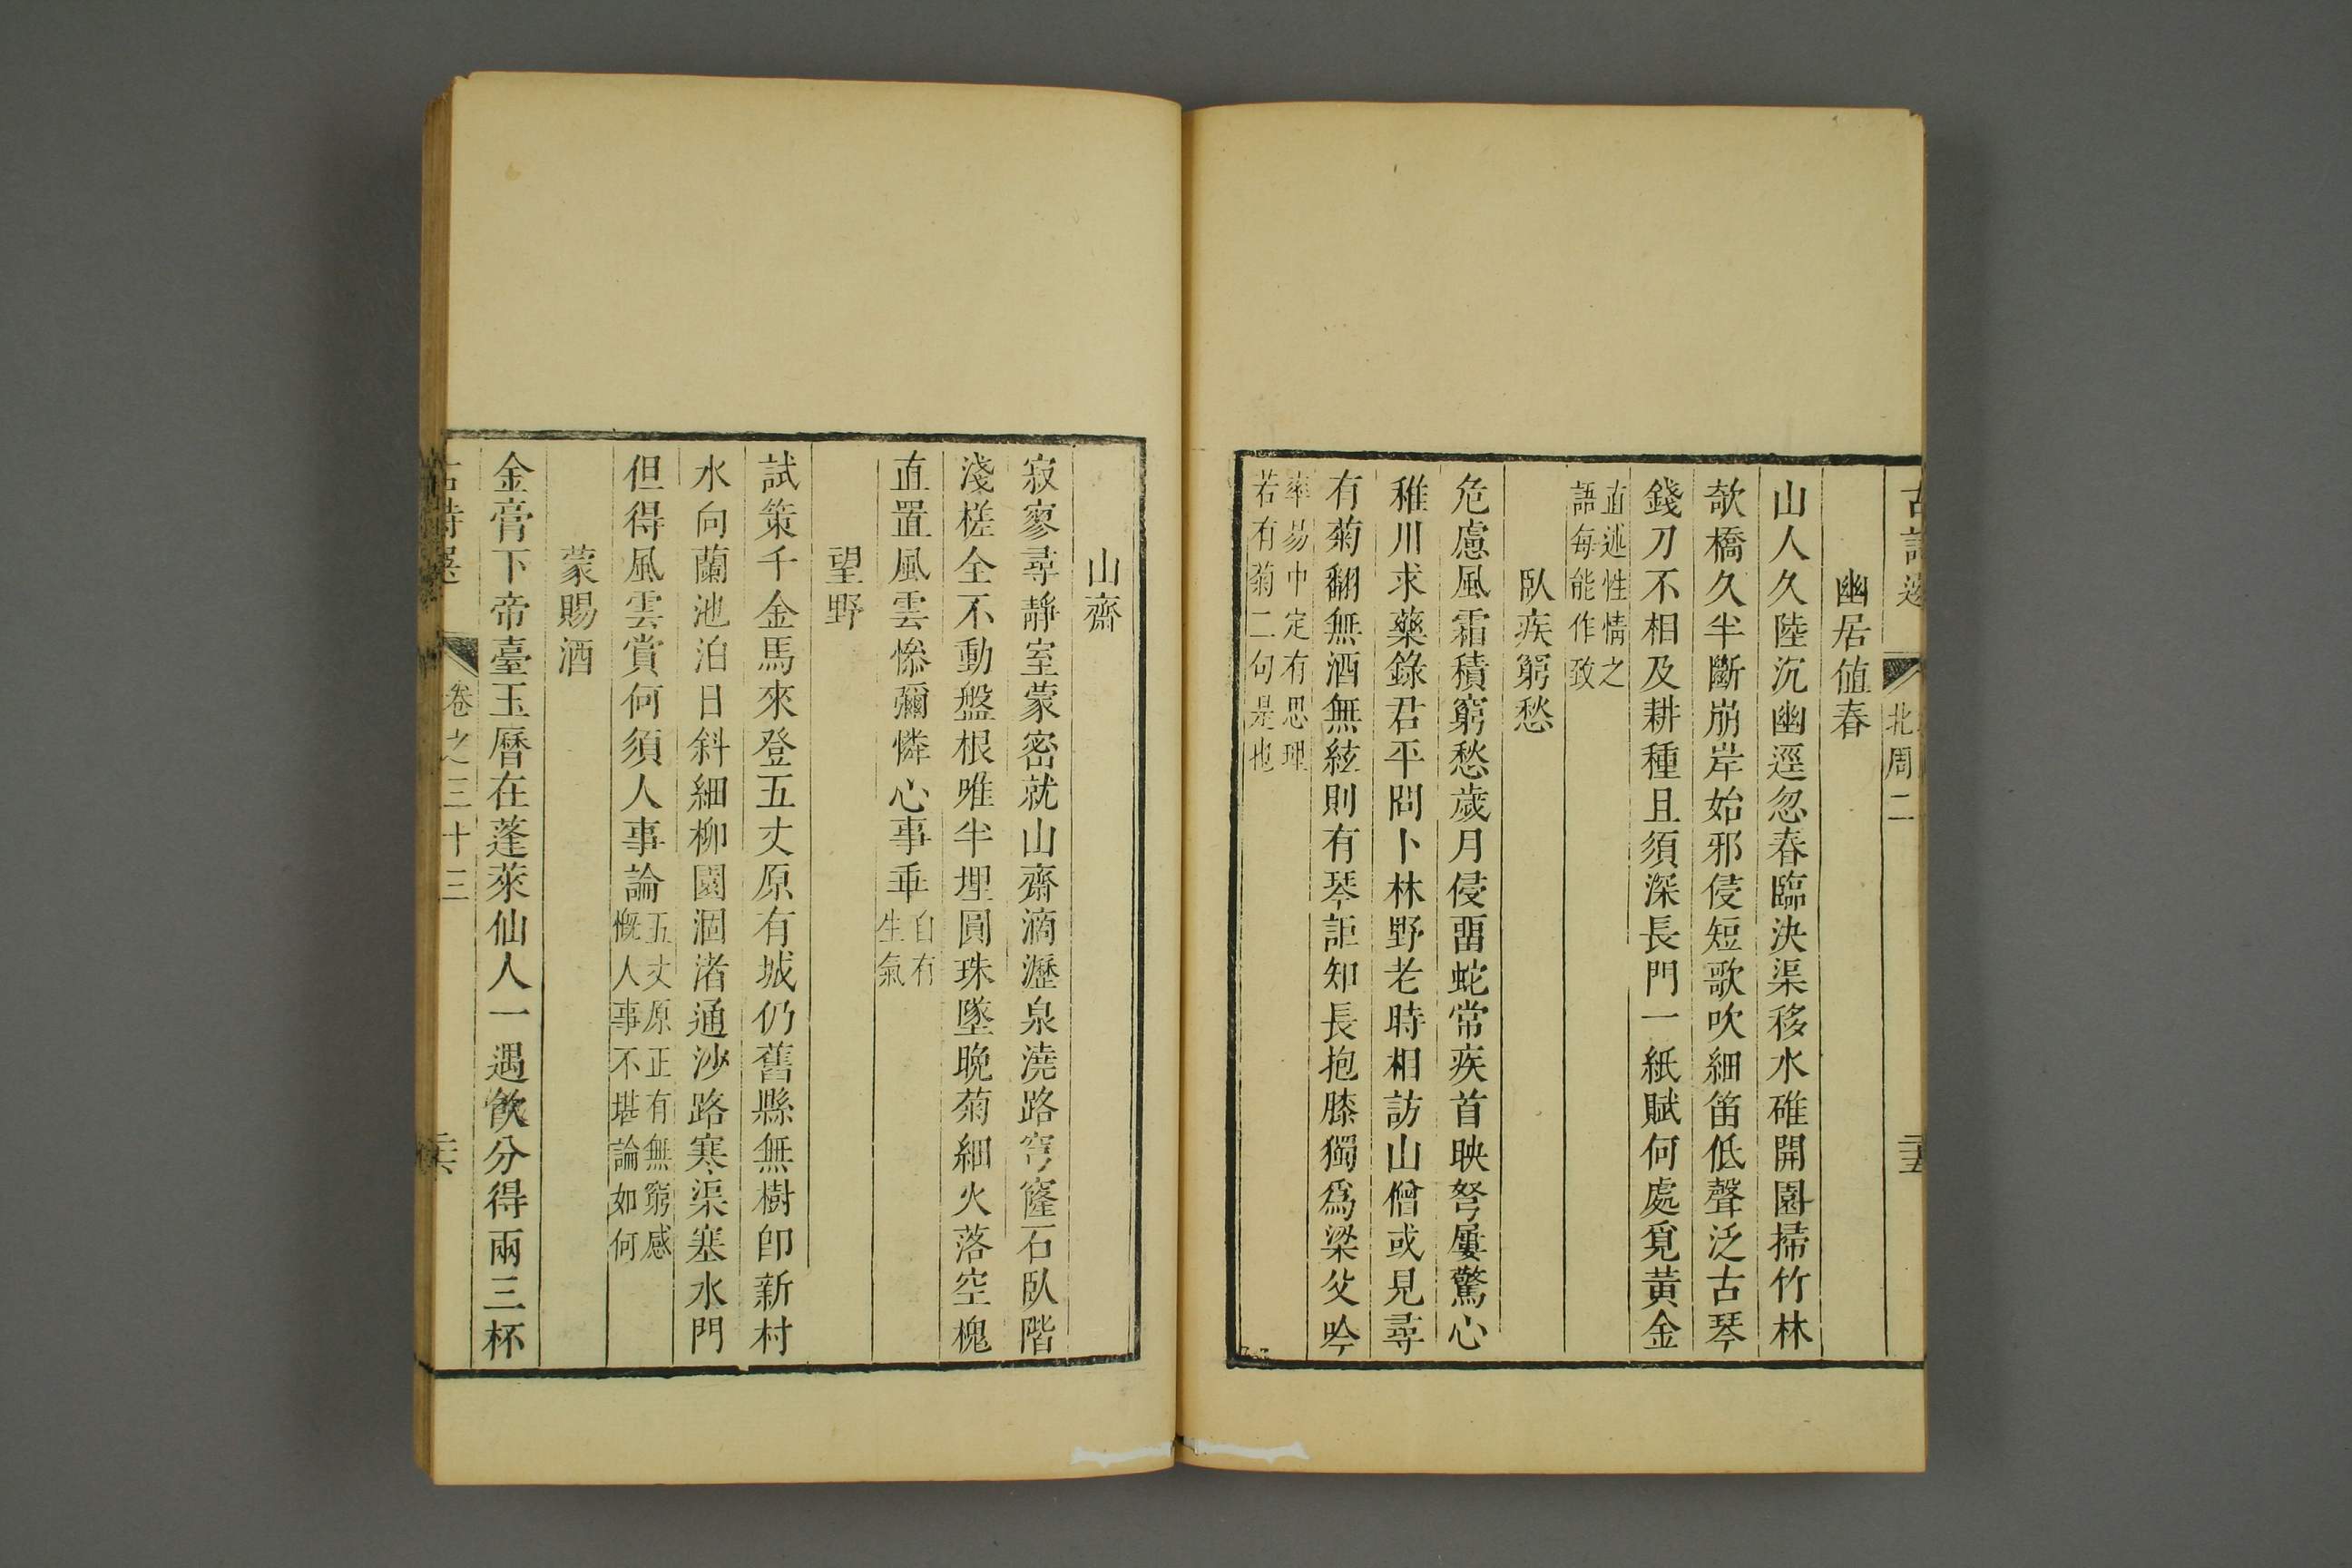 北周二
幽居値春
山人久陸沉幽逕忽春臨決渠移水碓開園掃竹林
欹橋久半斷崩岸始邪侵短歌吹細笛低聲泛古琴
錢刀不相及耕種且須深長門一紙賦何處覓黃金
直述性情之
語每能作致
臥疾窮愁
危慮風霜積窮愁歲月侵畱蛇常疾首映弩屢驚心
稚川求藥錄君平問卜林野老時相訪山僧或見尋
有菊翻無酒無絃則有琴詎知長抱膝獨爲梁父吟
率易中定有思理
若有菊二句是也
山齋
寂寥尋靜室蒙密就山齋滴瀝泉澆路穹窿石臥階
淺槎全不動盤根唯半埋圓珠墜晩菊細火落空槐
直置風雲慘彌憐心事乖
自有
生氣
望野
試策千金馬來登五丈原有城仍舊縣無樹卽新村
水向蘭池泊日斜細柳園涸渚通沙路寒渠塞水門
但得風雲賞何須人事論
五丈原正有無窮感
慨人事不堪論如何
蒙賜酒
金膏下帝臺玉曆在蓬萊仙人一遇飮分得兩三杯
卷之三十三